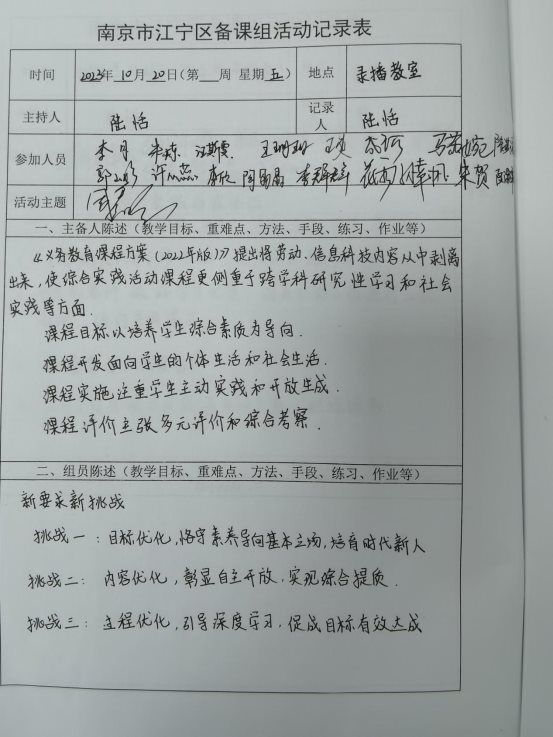 南京市江宁区备课组活动记录表
时间 2023年10月20日(第 周 星期五) 地点 录播教室
主持人 陆恬 记录人 陆恬
参加人员 李月
许燕 陶勇晶 李辉 朱贺
活动主题
一、主备人陈述(教学目标、重难点、方法、手段、练习、作业等)
《义务教育课程方案(2022年版)》提出将劳动、信息科技内容从中剥离
出来,使综合实践活动课程更侧重于跨学科研究性学习和社会
实践等方面.
课程目标以培养学生综合素质为导向.
课程开发面向学生的个体生活和社会生活.
课程实施注重学生主动实践和开放生成.
课程评价主张多元评价和综合考察.
二、组员陈述(教学目标、重难点、方法、手段、练习、作业等)
新要求新挑战
挑战一:目标优化,恪守素养导向基本立场,培育时代新人
挑战二:内容优化,彰显自主开放,实现综合提质.
挑战三:过程优化,引导深度学习,促成目标有效达成